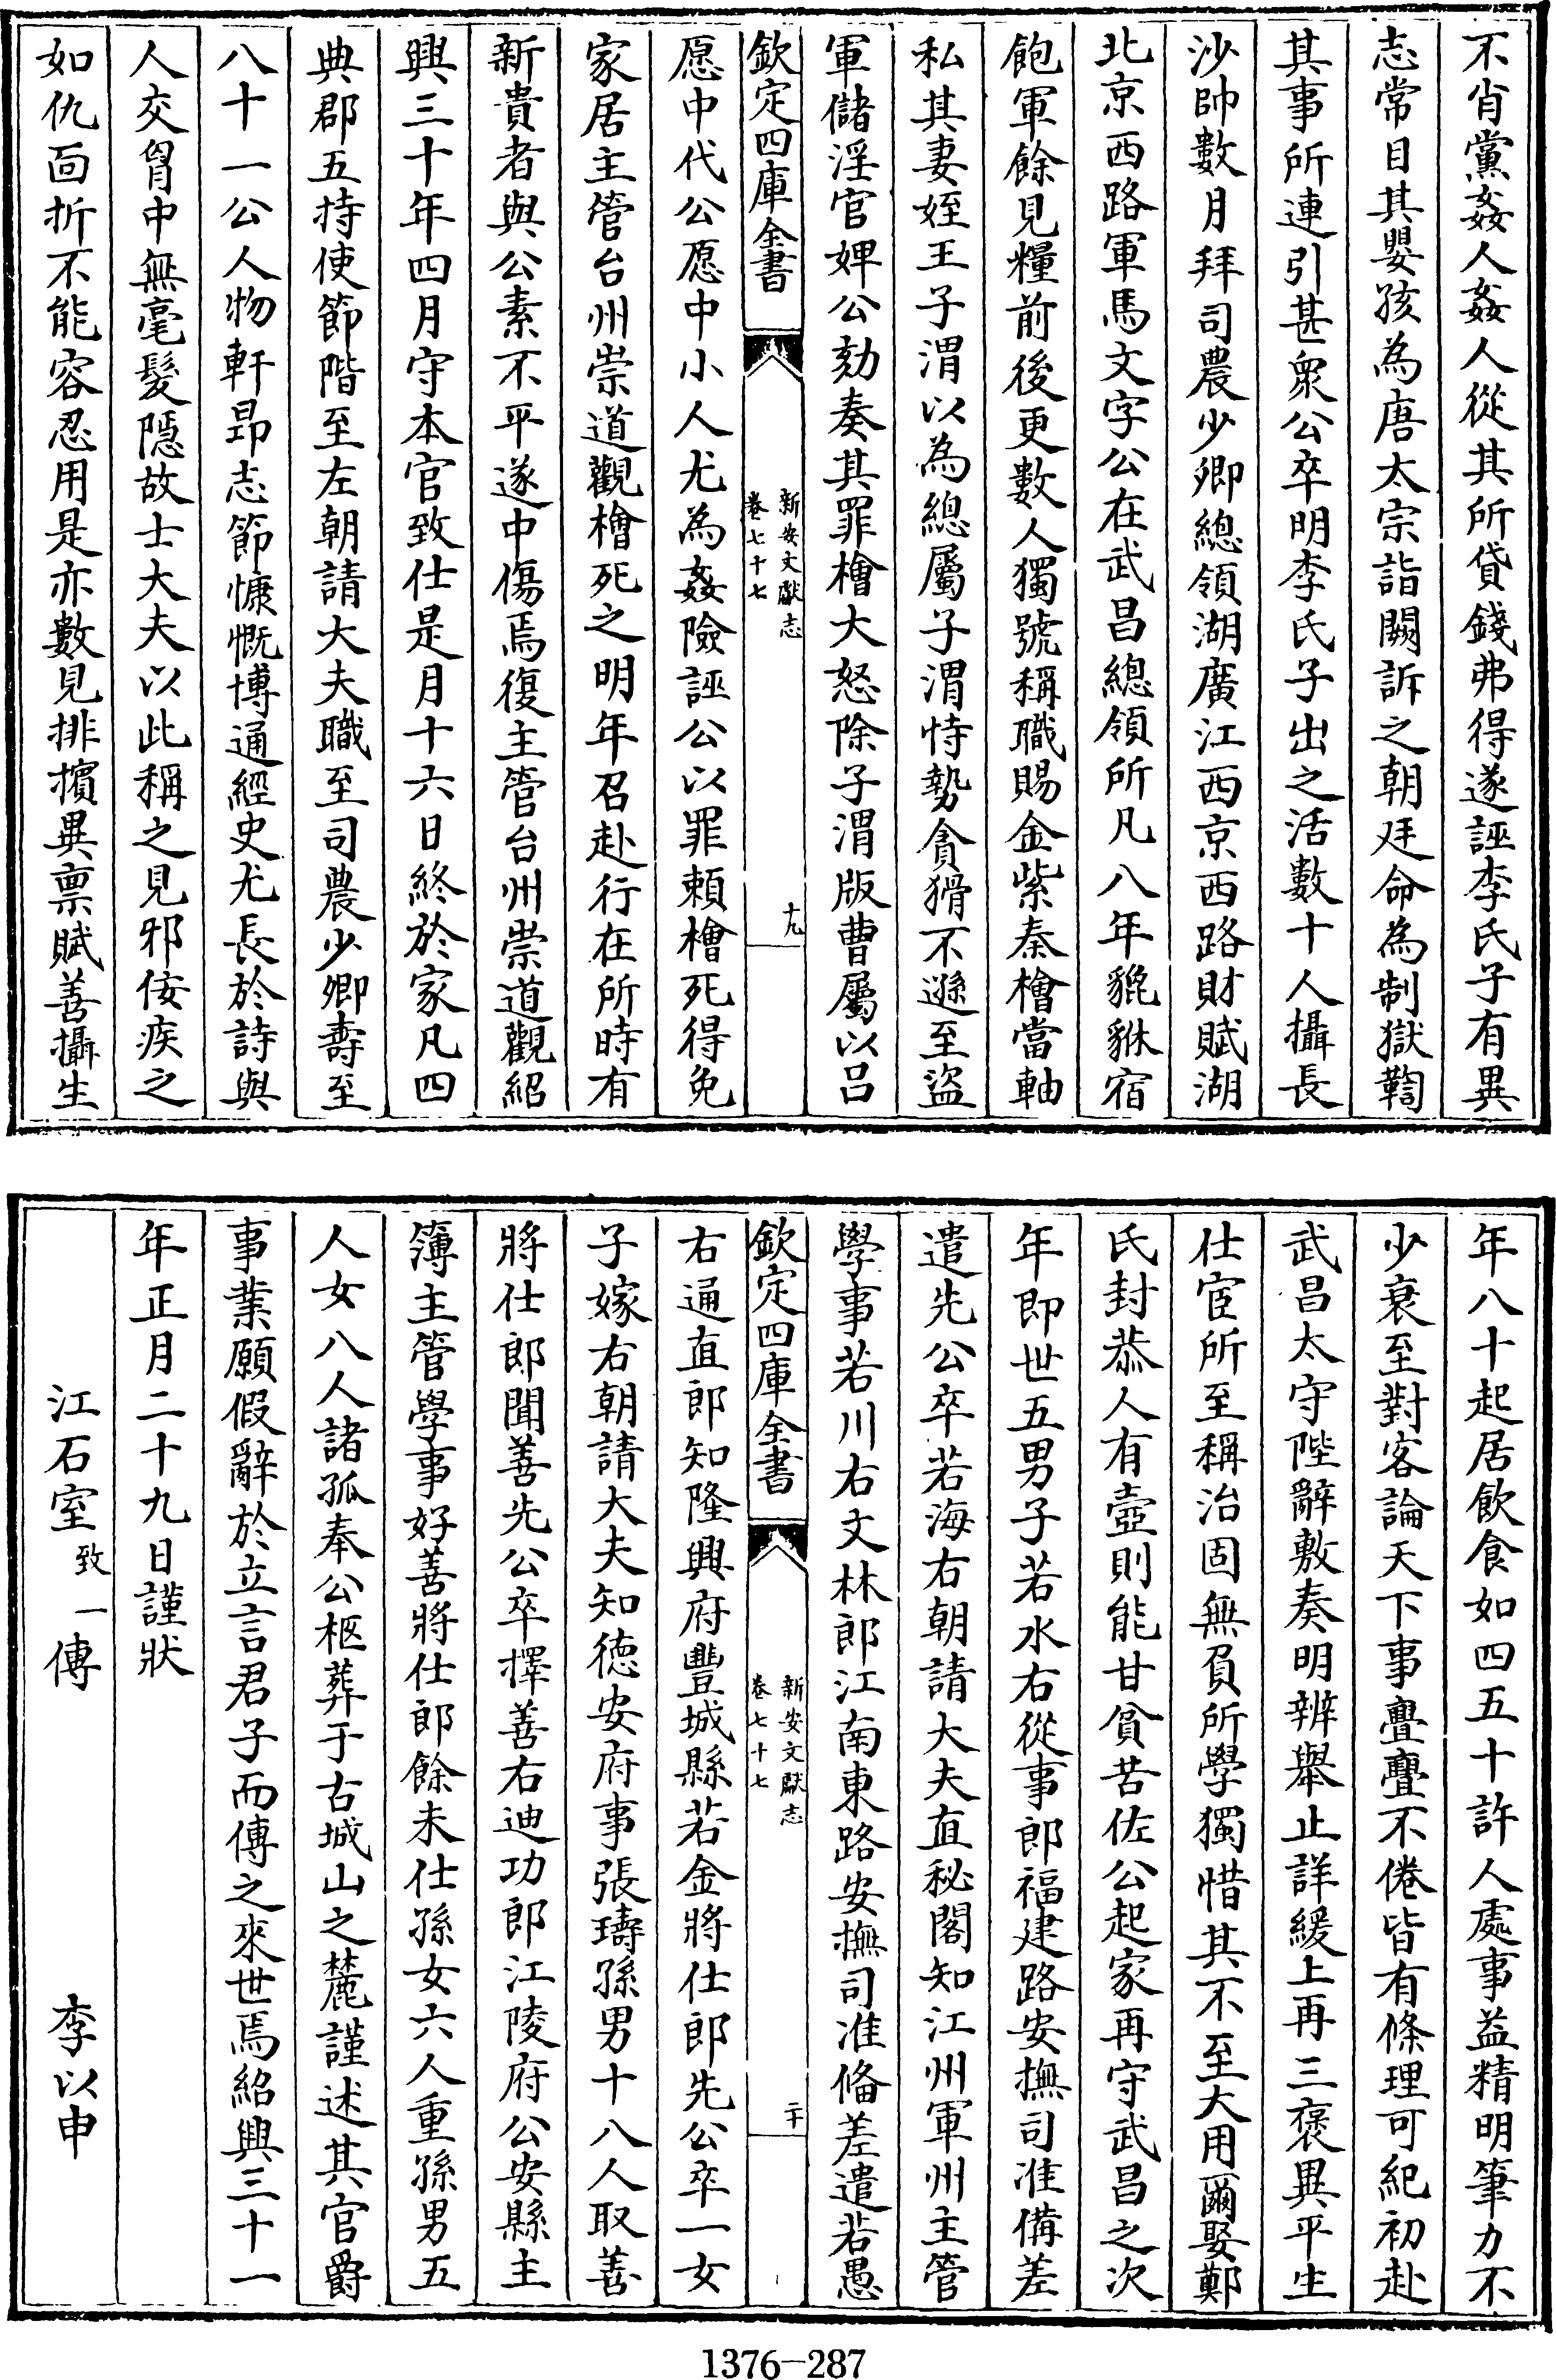 不肖黨姦人姦人從其所貸錢弗得遂誣李氏子有異
志常目其嬰孩為唐太宗詣闕訴之朝廷命為制獄鞫
其事所連引甚衆公卒明李氏子出之活數十人攝長
沙帥數月拜司農少卿總領湖廣江西京西路財賦湖
北京西路軍馬文字公在武昌總領所凡八年貔貅宿
飽軍餘見糧前後更數人獨號稱職賜金紫秦檜當軸
私其妻姪王子渭以為總屬子渭恃勢貪猾不遜至盜
軍儲淫官婢公劾奏其罪檜大怒除子渭版曹屬以吕
欽定四庫全書
新安文獻志
卷七十七
十九
愿中代公愿中小人尤為姦險誣公以罪頼檜死得免
家居主管台州崇道觀檜死之明年召赴行在所時有
新貴者與公素不平遂中傷焉復主管台州崇道觀紹
興三十年四月守本官致仕是月十六日終於家凡四
典郡五持使節階至左朝請大夫職至司農少卿壽至
八十一公人物軒昻志節慷慨博通經史尤長於詩與
人交胷中無毫髮隱故士大夫以此稱之見邪佞疾之
如仇面折不能容忍用是亦數見排擯異禀賦善攝生
年八十起居飲食如四五十許人處事益精明筆力不
少衰至對客論天下事亹亹不倦皆有條理可紀初赴
武昌太守陛辭敷奏明辨舉止詳緩上再三褒異平生
仕宦所至稱治固無負所學獨惜其不至大用爾娶鄭
氏封恭人有壼則能甘貧苦佐公起家再守武昌之次
年即世五男子若水右從事郎福建路安撫司准備差
遣先公卒若海右朝請大夫直秘閣知江州軍州主管
學事若川右文林郎江南東路安撫司准備差遣若愚
欽定四庫全書
新安文獻志
卷七十七
二十
右通直郎知隆興府豐城縣若金將仕郎先公卒一女
子嫁右朝請大夫知德安府事張璹孫男十八人取善
將仕郎聞善先公卒擇善右迪功郎江陵府公安縣主
簿主管學事好善將仕郎餘未仕孫女六人重孫男五
人女八人諸孤奉公柩葬于古城山之麓謹述其官爵
事業願假辭於立言君子而傳之來世焉紹興三十一
年正月二十九日謹狀
江石室致一傳 李以申
1376—287